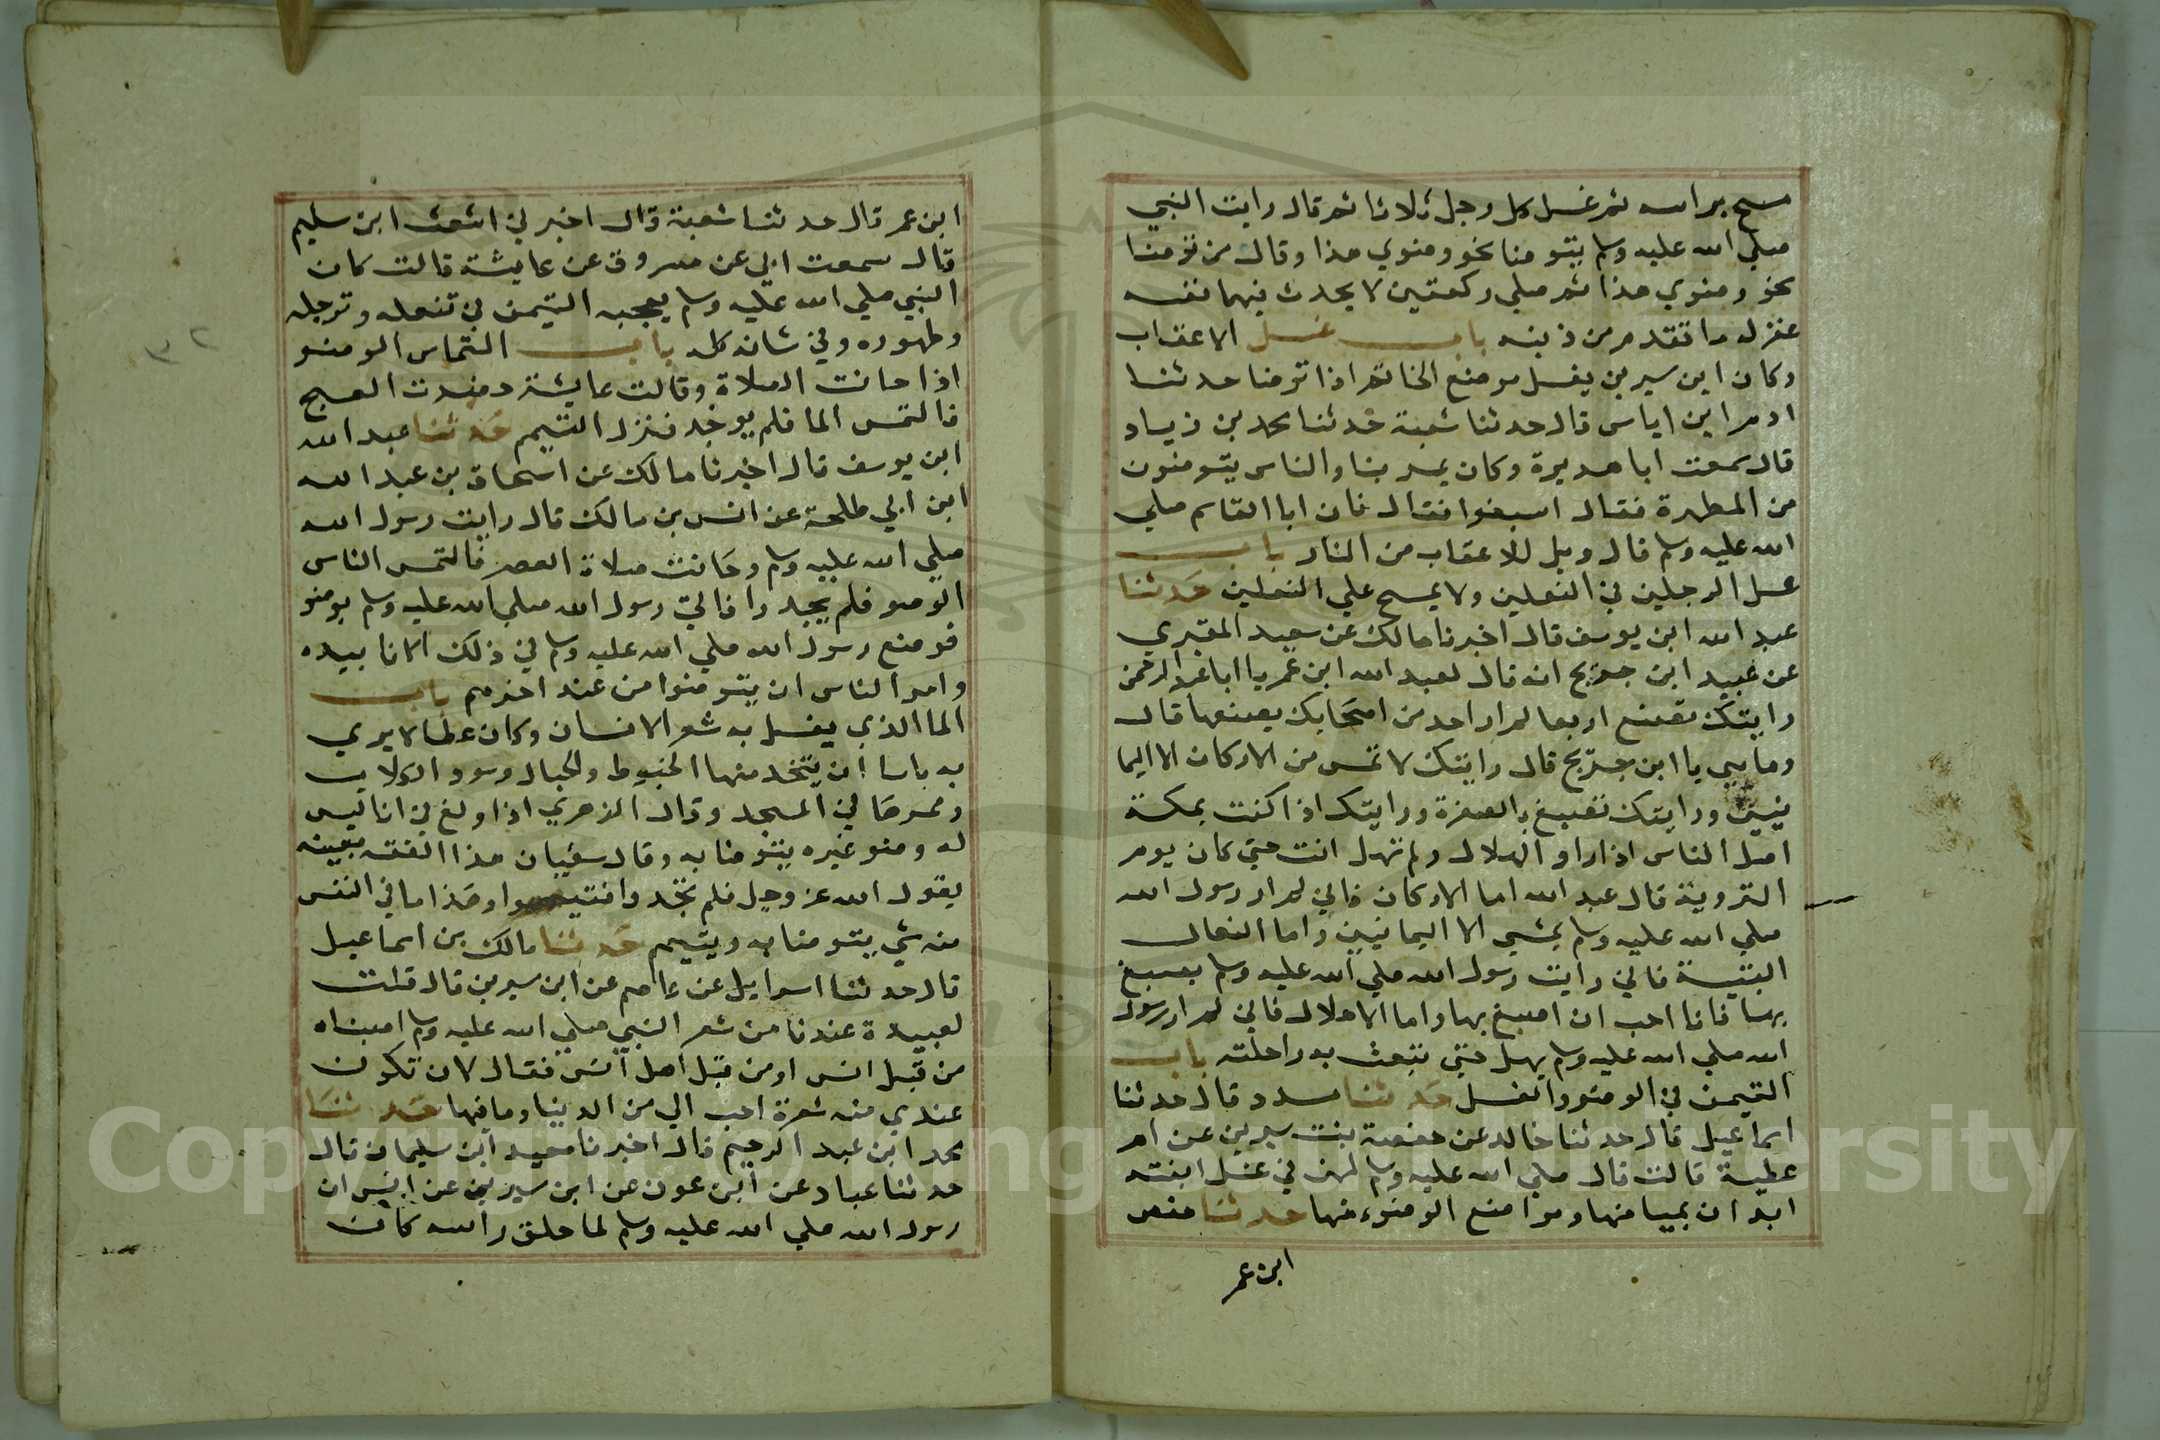 مسح براسه ثم غسل كل رجل ثلاثا ثم قال رايت النبي
صلي الله عليه وسلم يتوضا نحو وضوي هذا وقال من توضا
نحو وضوي هذا ثم صلي ركعتين لا يحدث فيهما نفسه
غفر له ما تقدم من ذنبه باب غسل الاعقاب
وكان ابن سيرين يغسل موضع الخاتم اذا توضا حدثنا
ادم ابن اياس قال حدثنا شعبة حدثنا محمد بن زياد
قال سمعت ابا هريرة وكان يمر بنا والناس يتوضون
من المطهرة فقال اسبغوا فقال فان ابا القاسم صلي
الله عليه وسلم قال ويل للاعقاب من النار باب
غسل الرجلين في النعلين ولا يمسح علي النعلين حدثنا
عبد الله ابن يوسف قال اخبرنا مالك عن سعيد المقبري
عن عبيد ابن جريج انه قال لعبد الله ابن عمر يا ابا عبد الرحمن
رايتك تصنع اربعا لم ار احد من اصحابك يصنعها قال
وما هي يا ابن جريج قال رايتك لا تمس من الاركان الا اليما
نيين ورايتك تصبغ بالصفرة ورايتك اذا كنت بمكة
اهل الناس اذا راو الهلال ولم تهل انت حتي كان يوم
التروية قال عبد الله اما الاركان فاني لم ار رسول الله
صلي الله عليه وسلم يمس الا اليمانيين واما النعال
فاني رايت رسول الله صلي الله عليه وسلم يصبغ
بها فانا احب ان اصبغ بها واما الاهلال فاني لم ار رسول
الله صلي الله عليه وسلم يهل حتي تنبعث به راحلته باب
التيمن في الوضوء والغسل حدثنا مسدد قال حدثنا
اسماعيل قال حدثنا خالد عن حفصة بنت سيرين عن ام
عطية قالت قال صلي الله عليه وسلم لهن في غسل ابنته
ابدان بميامنها ومواضع الوضوء منها حدثنا حفص
ابن عمر
ابن عمر قال حدثنا شعبة قال اخبرني اشعث ابن سليم
قال سمعت ابي عن مسروق عن عايشة قالت كان
النبي صلي الله عليه وسلم يعجبه التيمن في تنعله وترجله
وطهوره وفي شانه كله باب التماس الوضو
اذا حانت الصلاة وقالت عايشة حضرت الصبح
فالتمس الما فلم يوجد فنزل التيمم حدثنا عبد الله
ابن يوسف قال اخبرنا مالك عن اسحاق بن عبد الله
ابن ابي طلحة عن انس بن مالك قال رايت رسول الله
صلي الله عليه وسلم وحانت صلاة العصر فالتمس الناس
الوضو فلم يجدوا فاتي رسول الله صلي الله عليه وسلم بوضو
فوضع رسول الله صلي الله عليه وسلم في ذلك الانا بيده
وامر الناس ان يتوضوا من عند اخرهم باب
الما الذي يغسل به شعر الانسان وكان عطا لا يري
به باسا ان يتخذ منها الخيوط والحبال وسور الكلاب
وممرها في المسجد وقال الزهري اذا ولغ في انا ليس
له وضو غيره يتوضا به وقال سفيان هذا الفقه بعينه
يقول الله عز وجل فلم تجدوا فتيمموا وهذا ما في النفس
منه شي يتوضا به ويتيمم حدثنا مالك بن اسماعيل
قال حدثنا اسرايل عن عاصم عن ابن سيرين قال قلت
لعبيدة عندنا من شعر النبي صلي الله عليه وسلم اصبناه
من قبل انس او من قبل اهل انس فقال لان تكون
عندي منه شعرة احب الي من الدنيا وما فيها حدثنا
محمد ابن عبد الرحيم قال اخبرنا سعيد ابن سليمان قال
حدثنا عباد عن ابن عون عن ابن سيرين عن انس ان
رسول الله صلي الله عليه وسلم لما حلق راسه كان
٣٢